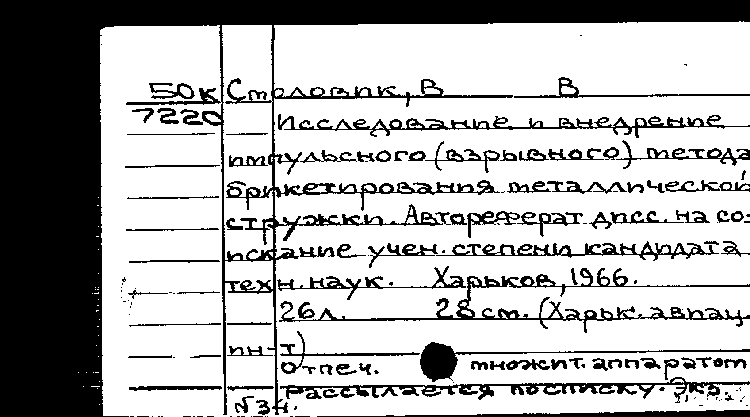 50к Столовик, В В
7220
Исследование и внедрение
импульсного (взрывного) метода
брикетирования металлической
стружки. Автореферат дисс. на со-
искание учен. степени кандидата
техн. наук. Харьков, 1966.
26л. 28см. (Харьк. авиац.
ин-т)
Отпеч. множит. аппаратом
Рассылается по списку. Экз.
№34.